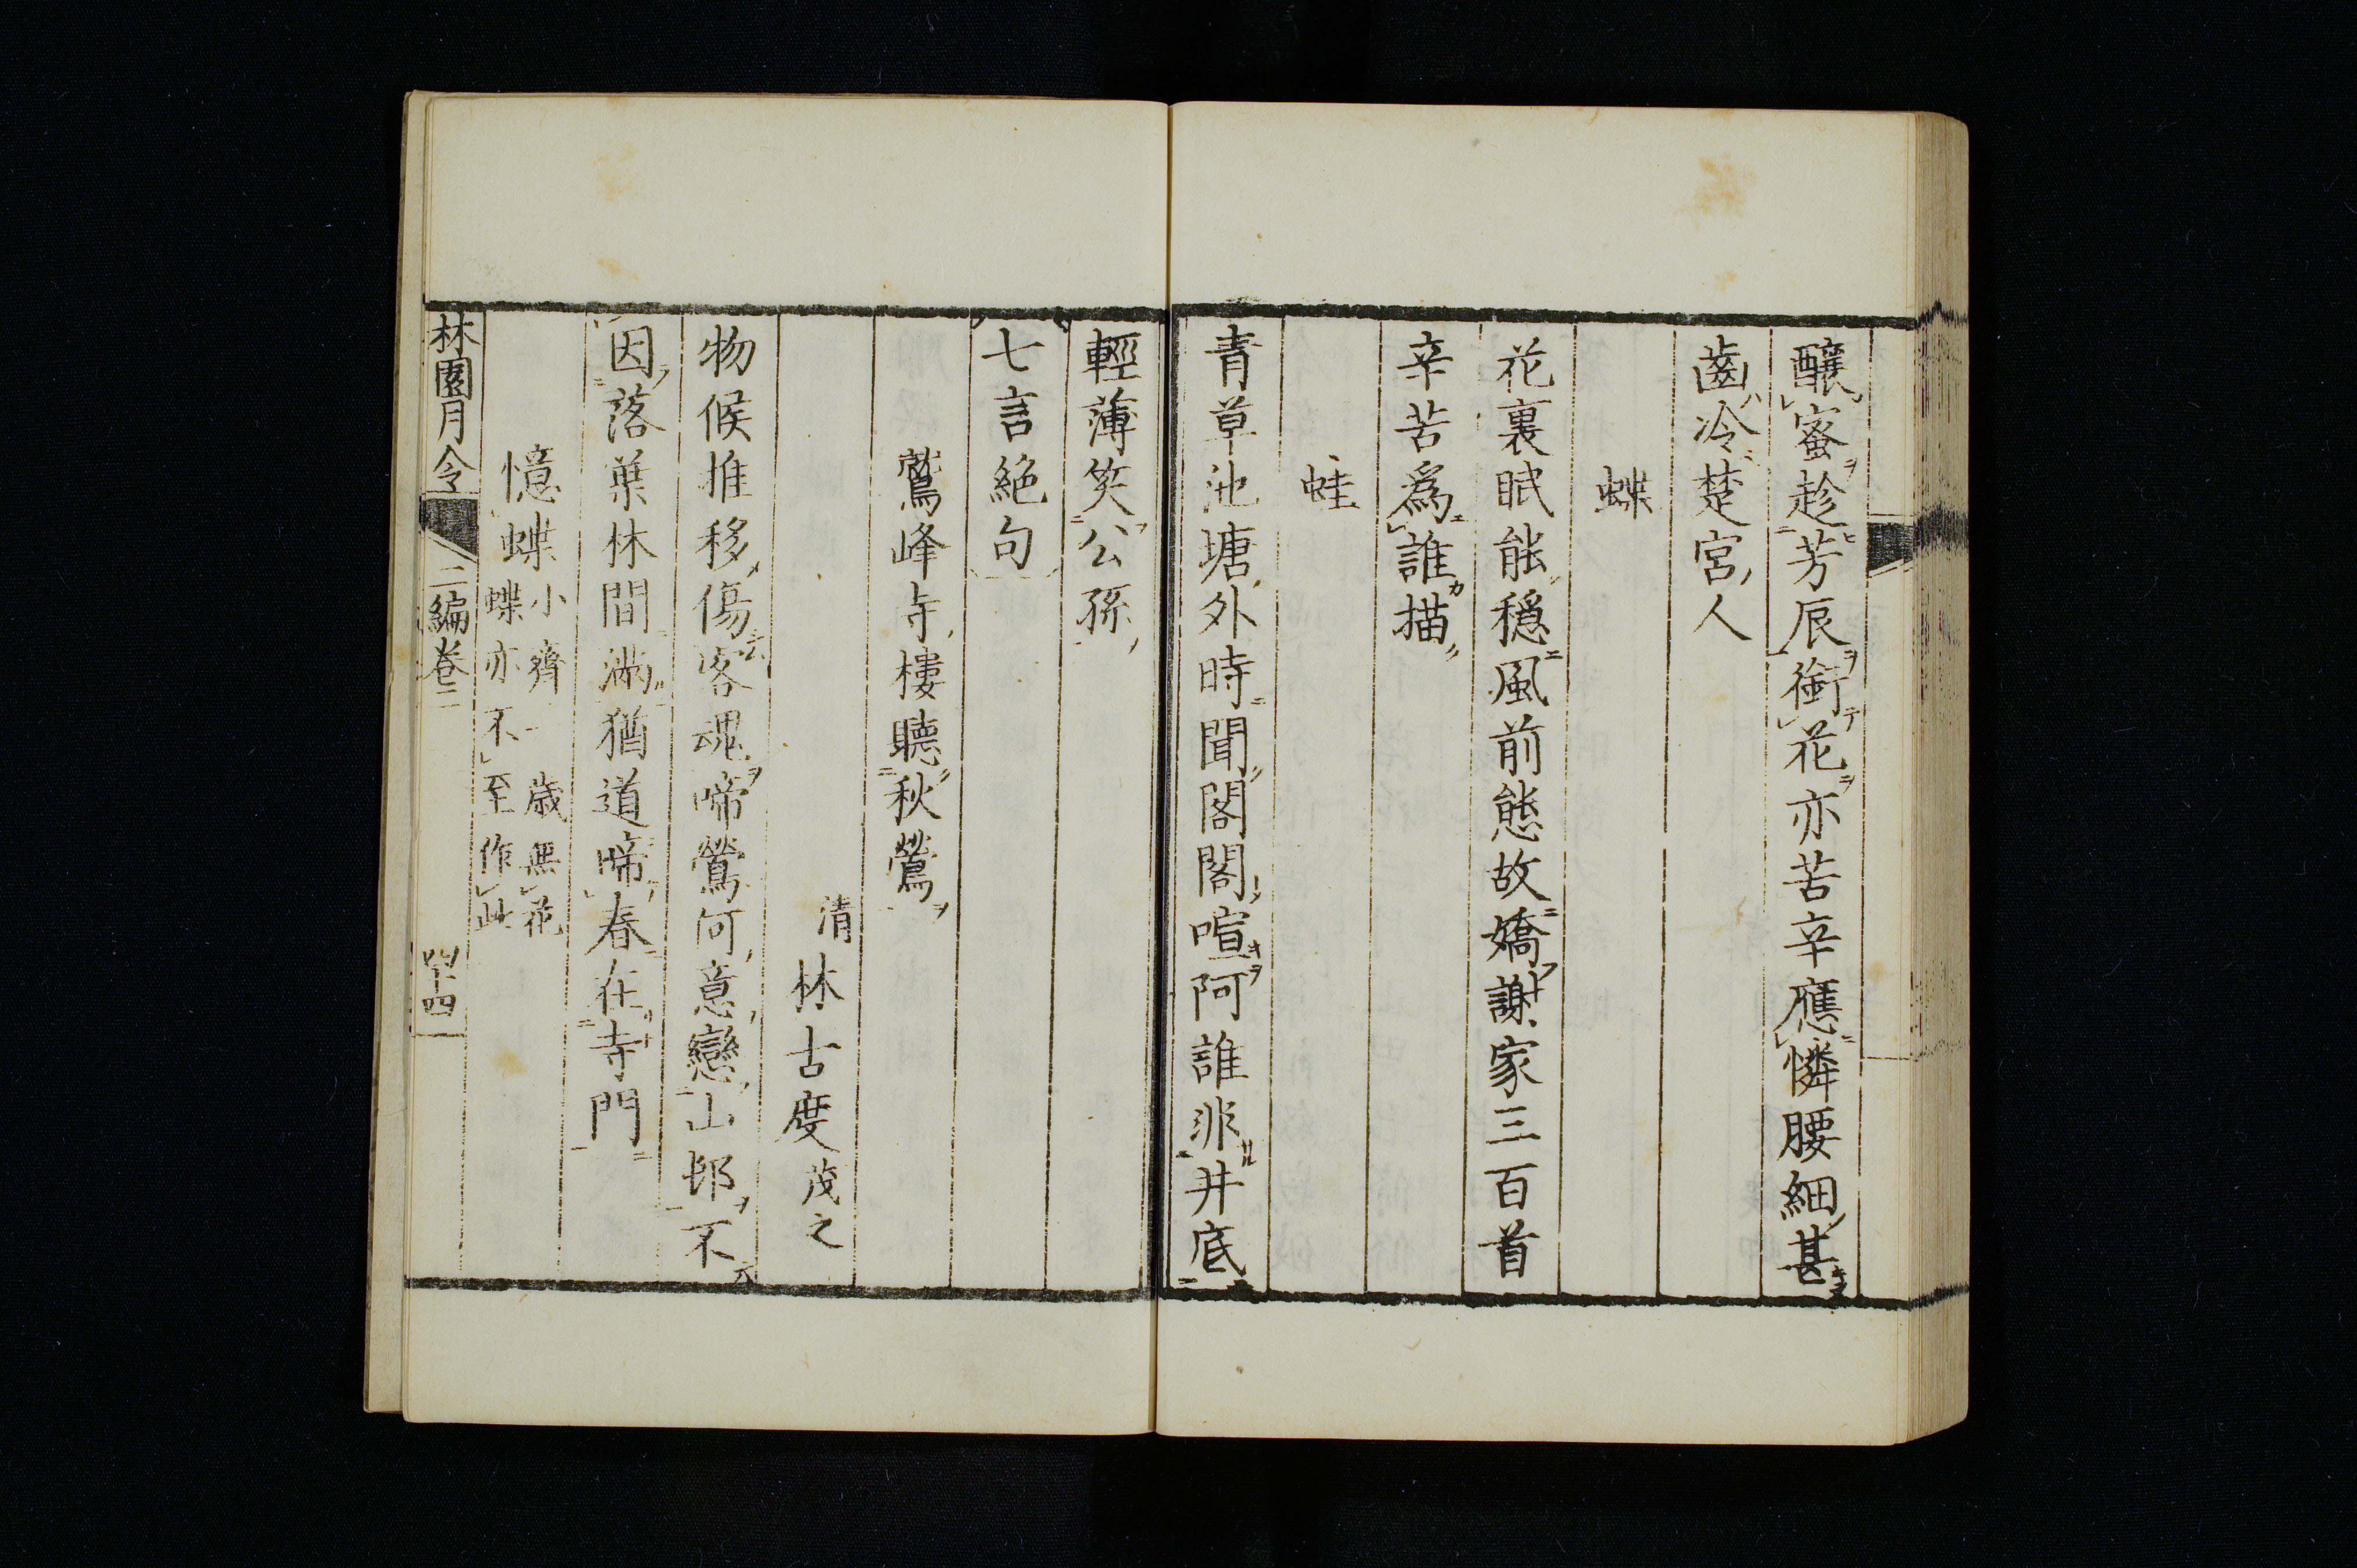 釀蜜趁芳辰銜花亦苦辛應憐腰細甚
齒冷楚宮人
蝶
花裏眠能穩風前態故嬌謝家三百首
辛苦爲誰描
蛙
青草池塘外時聞閣閣喧阿誰非井底
輕薄笑公孫
七言絕句
鷲峰寺樓聽秋鶯
清林古度茂之
物候推移傷客魂啼鶯何意戀山邨不
因落葉林間滿猶道啼春在寺門
憶蝶小齋一歲無花
蝶亦不至作此
林園月令 二編卷二 四十四